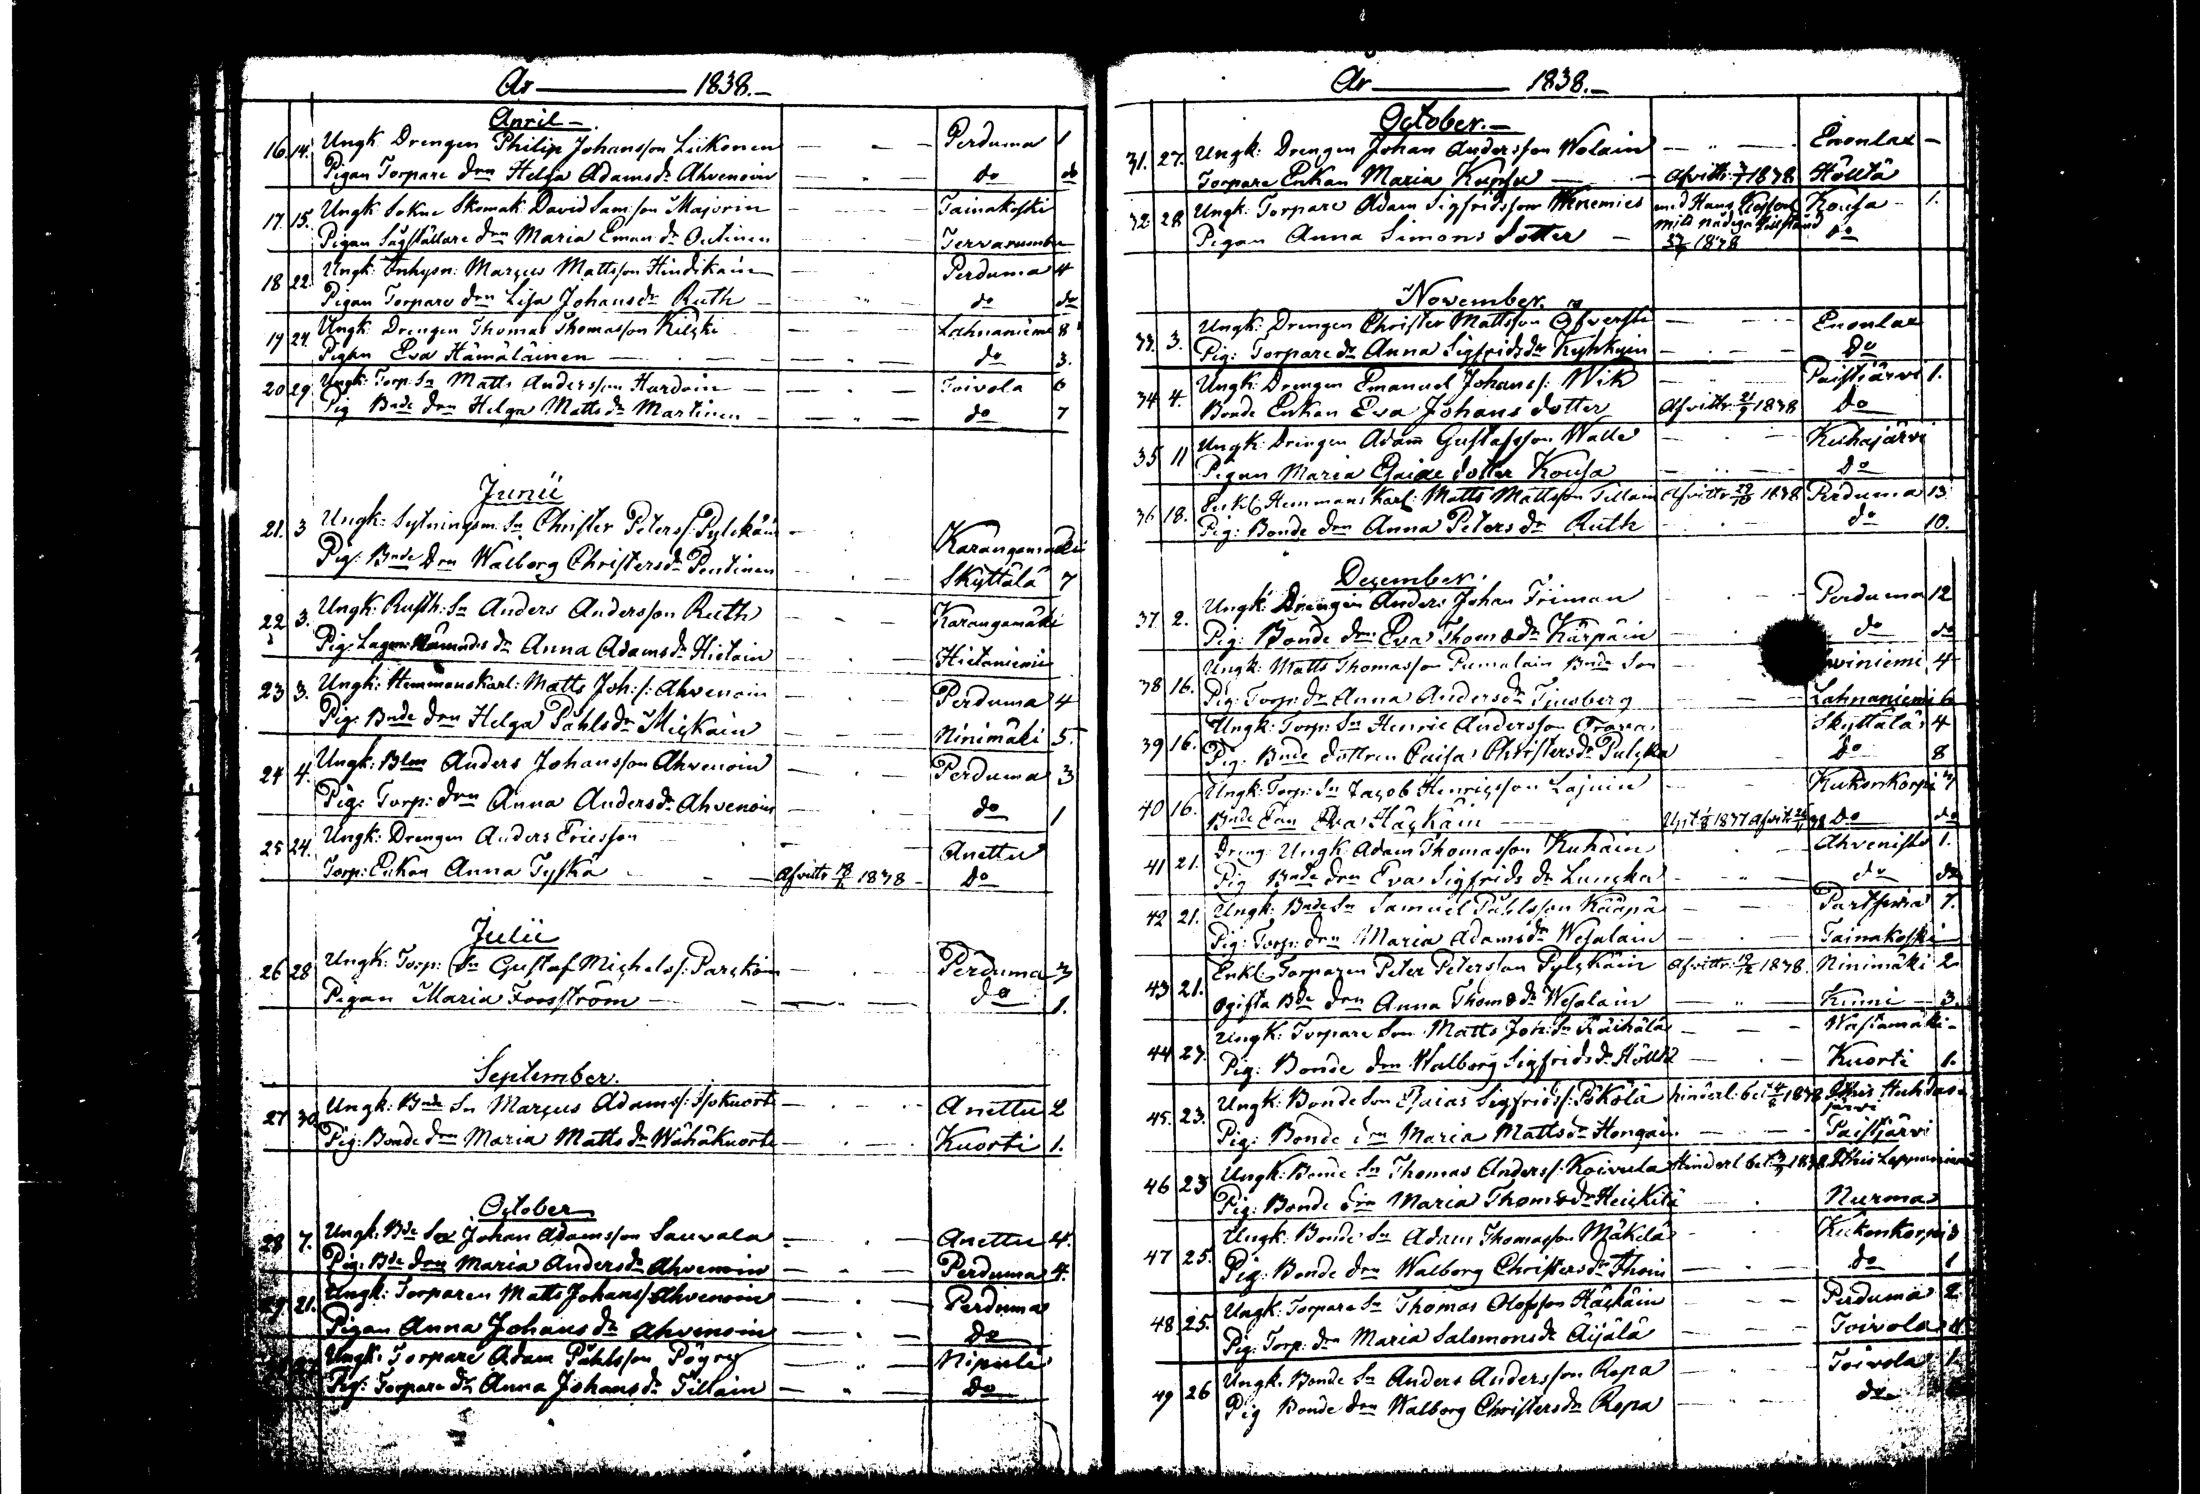 År 1838.
April
16 14. Ungk. Drengen Philip Johansson Liikonen Perduma 1
Pigan Torpare drn Helga Adamsdr Ahvenoin do do
17 15. Ungk Sokne Skomak: David Samsson Majorin Tainakoski
Pigan drn Maria Emandr Outinen
18 22. Ungk: Inhysn: Marcus Mattsson Hindikain Perduma 4
Pigan Torpare drn Lisa Johansdr Ruth do do
19 24 Ungk: Drengen Thomas Thomasson Kilski Lahnaniemi 8
Pigan Eva Hämäläinen do 3.
20 29. Ungk: Torp: Sn Matts Andersson Hurdoin Toivola 6
Pig Bnde drn Helga Mattsdr Martinen do 7
Junii
21. 3 Ungk: Sytningsm: Sn Christer Peterss: Pylckäin Karangamäki
Pig: Bnde Drn Walborg Christersdr Pentinen Skyttälä 7
22 3. Ungk: Rusth: Sn Anders Andersson Ruth Karangamäki
Pig: Lagm: Nämndes dr Anna Adamsdr Hietain Hietaniemi
23 3. Ungk: Hemmanskarl: Matts Joh:s: Ahvenoin Perduma 4
Pig: Bnde drn Helga Påhlsdr Mickain Ninimäki 5.
24 4. Ungk: Anders Johansson Ahvenoin Perduma 3
Pig: Torp: drn Anna Andersdr Ahvenoin do 1
25 24. Ungk: Drengen Anders Ericsson Anettu
Torp: Enkan Anna Tyskä Afvittr 18/6 1838 Do
Julii
26 28 Ungk: Torp: Sn Gustaf Michelss: Parckoin Perduma 3
Pigan Maria Forsström do 1.
September.
27 30. Ungk: Bnde Sn Marcus Adamss: Isokuorti Anettu 2
Pig: Bonde drn Maria Mattsdr Wähäkuorti Kuorti 1.
October
28 7. Ungk: Bde Sn Johan Adamsson Sauvala Anettu 4.
Pig: Bde drn Maria Andersdr Ahvenoin Perduma 4.
29 21. Ungk: Torparen Matts Johanss: Ahvenoin Perduma
Pigan Anna Johansdr Ahvenoin Do
Ungk: Torpare Adam Påhlsson Pögry Nipuli
Pig: Torpare dr Anna Johansdr Tillain Do
År 1838.
October.
31. 27. Ungk: Drengen Johan Andersson Wolain Enonlax
Torpare Enkan Maria Afvittr: 1838 Hölttä
32 28 Ungk: Torpare Adam Sigfridsson Wenemies Kousa 1.
Pigan Anna Simons dotter 1838 do
November.
33. 3. Ungk: Drengen Christer Mattsson Öfversti Enonlax
Pig: Torpare dr Anna Sigfridsdr Kyhkyin Do
34 4. Ungk: Drengen Emanuel Johanss: Wik Paistjärvi 1.
Bonde Enkan Eva Johans dotter Afvittr: 21/9 1838 Do
35 11 Ungk: Drengen Adam Gustafsson Walle Kuhajärvi
Pigan Maria Esaiae dotter Kousa Do
36 18. Enkl: Hemmans Karl: Matts Mattsson Tillain Afvittr 29/10 1838 Perduma 13
Pig: Bonde drn Anna Petersdr Ruth do 10.
Dezember.
37 2. Ungk: Drengen Anders Johan Friman Perduma 12
Pig: Bonde drn Eva Thomædr Kärpäin do do
38 16. Ungk: Matts Thomasson Pumalain Bnde Son 4
Pig: Torp: dr Anna Andersdr Tjusberg Lahnaniemi 6
39 16. Ungk: Torp: Sn Henric Andersson Orava Skyttälä 4
Pig: Bnde dottren Caisa Christersdr Pulcka Do 8
40 16. Ungk: Torp: Sn Jacob Henricsson Lajuin Kukonkorpi 7
Bnde Eva Häckäin 1837 Afvittr Do do
41 21. Dreng: Ungk: Adam Thomasson Kuhäin Ahvenisto 1.
Pig Bnde drn Eva Sigfrids dr Luncka do do
42 21. Ungk: Bnde Sn Samuel Påhlsson Kääpä Partsima 7.
Pig: Torp: drn Maria Adamsdr Wesalain Tainakoski
43 21. Enkl: Torparen Peter Petersson Pylckäin Afvittr: 19/12 1838 Ninimäki 2.
ogifta Bde drn Anna Thomædr Wesalain Kinni 3.
44 27. Ungk: Torpare Son Matts Joh: Sn Räihälä Wastamäki
Pig: Bonde drn Walborg Sigfridsdr Hölttä Kuorti 1.
45. 23. Ungk: Bonde Son Esaias Sigfridss: Pökölä hinderl: bet 1838
Pig: Bonde drn Maria Mattsdr Hongain Paistjärvi
46 23 Ungk: Bonde Sn Thomas Anderss: Koivula Hinderl bet 1838
Pig: Bonde drn Maria Thomædr Heickilä Nurmaa
47 25. Ungk: Bonde Sn Adam Thomasson Mäkelä Kukonkorpi 3
Pig: Bonde drn Walborg Christersdr Thoin do 1
48 25. Ungk: Torpare Sn Thomas Olofsson Häckäin Perduma 2.
Pig: Torp: drn Maria Salomonsdr Äijälä Toivola 4.
49 26 Ungk: Bonde Sn Anders Andersson Ropa Toivola 1.
Pig Bonde drn Walborg Christersdr Ropa do